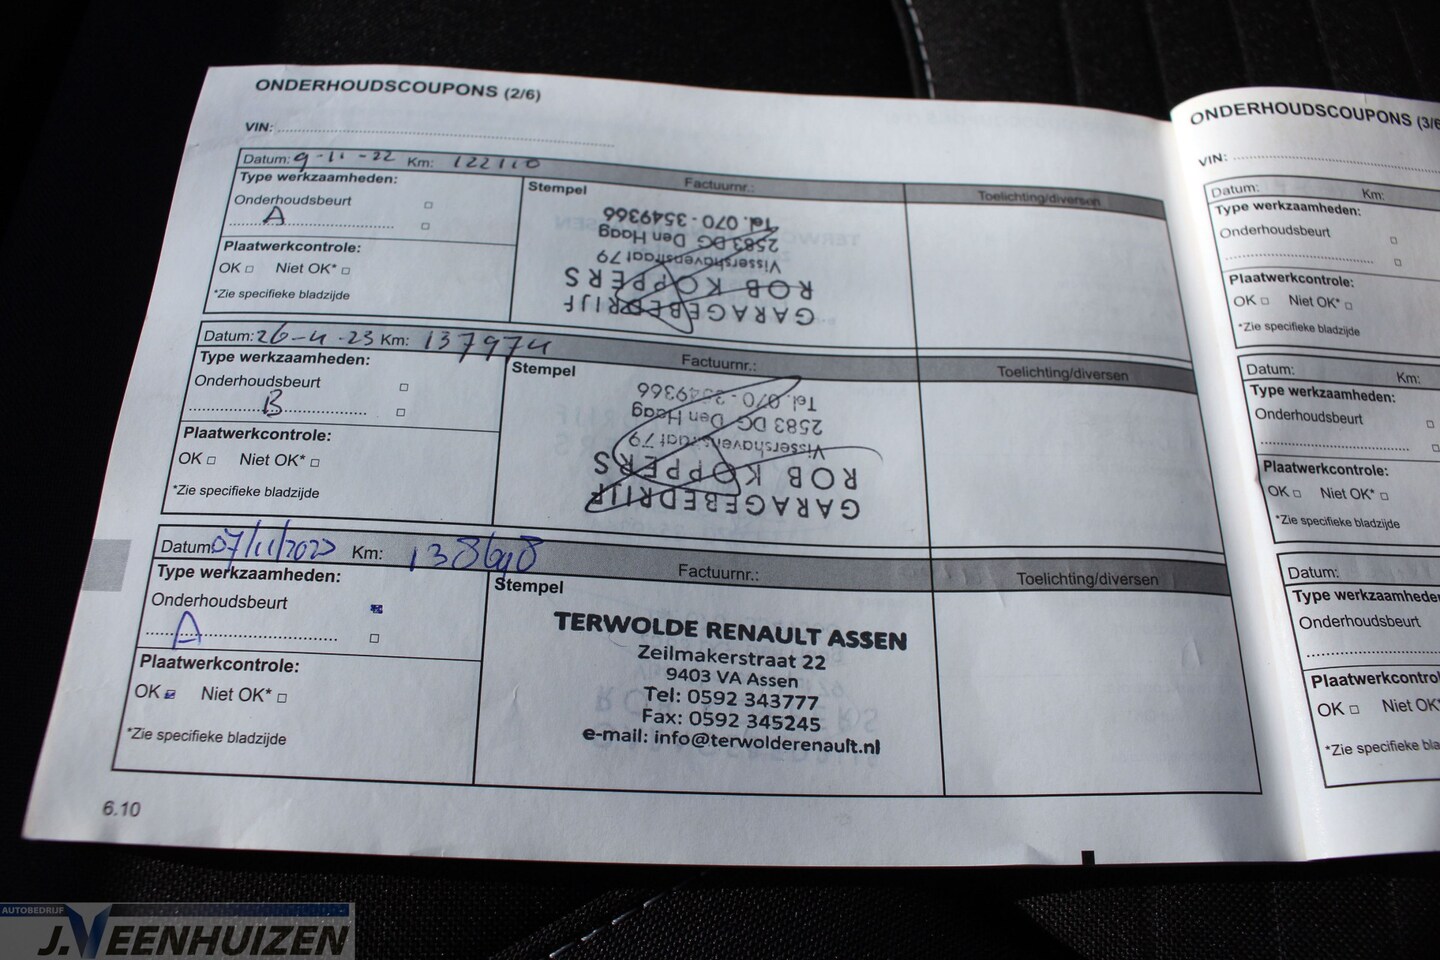 ONDERHOUDSCOUPONS (2/6)
VIN:
Datum: 9-11-22 Km: 122110
Type werkzaamheden:
Onderhoudsbeurt
A
Plaatwerkcontrole:
OK Niet OK*
*Zie specifieke bladzijde
Stempel
Factuurnr.:
Toelichting/diversen
GARAGEBEDRIJF
ROB KOPPERS
Vissershavenstraat 79
2583 DG Den Haag
Tel. 070 - 3549366
Datum: 26-4-23 Km: 137974
Type werkzaamheden:
Onderhoudsbeurt
B
Plaatwerkcontrole:
OK Niet OK*
*Zie specifieke bladzijde
Stempel
Factuurnr.:
Toelichting/diversen
GARAGEBEDRIJF
ROB KOPPERS
Vissershavenstraat 79
2583 DG Den Haag
Tel. 070 - 3549366
Datum: 07/11/2023 Km:
Type werkzaamheden:
Onderhoudsbeurt
A
Plaatwerkcontrole:
OK Niet OK*
*Zie specifieke bladzijde
Stempel
Factuurnr.:
Toelichting/diversen
TERWOLDE RENAULT ASSEN
Zeilmakerstraat 22
9403 VA Assen
Tel: 0592 343777
Fax: 0592 345245
e-mail: info@terwolderenault.nl
6.10
ONDERHOUDSCOUPONS (3/6
VIN:
Datum: Km:
Type werkzaamheden:
Onderhoudsbeurt
Plaatwerkcontrole:
OK Niet OK*
*Zie specifieke bladzijde
Datum: Km:
Type werkzaamheden:
Onderhoudsbeurt
Plaatwerkcontrole:
OK Niet OK*
*Zie specifieke bladzijde
Datum:
Type werkzaamhede
Onderhoudsbeurt
Plaatwerkcontrol
OK Niet OK*
*Zie specifieke bla
AUTOBEDRIJF
J.VEENHUIZEN